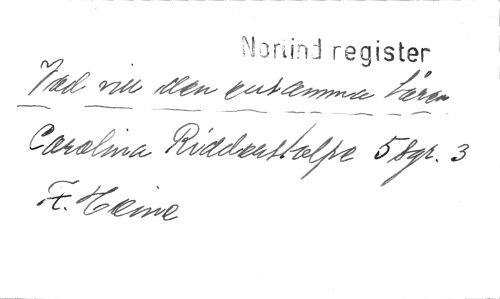 Norlind register
Vad vill den ensamma tåren
Carolina Ridderstolpe 5 Sgr. 3
F. Heine